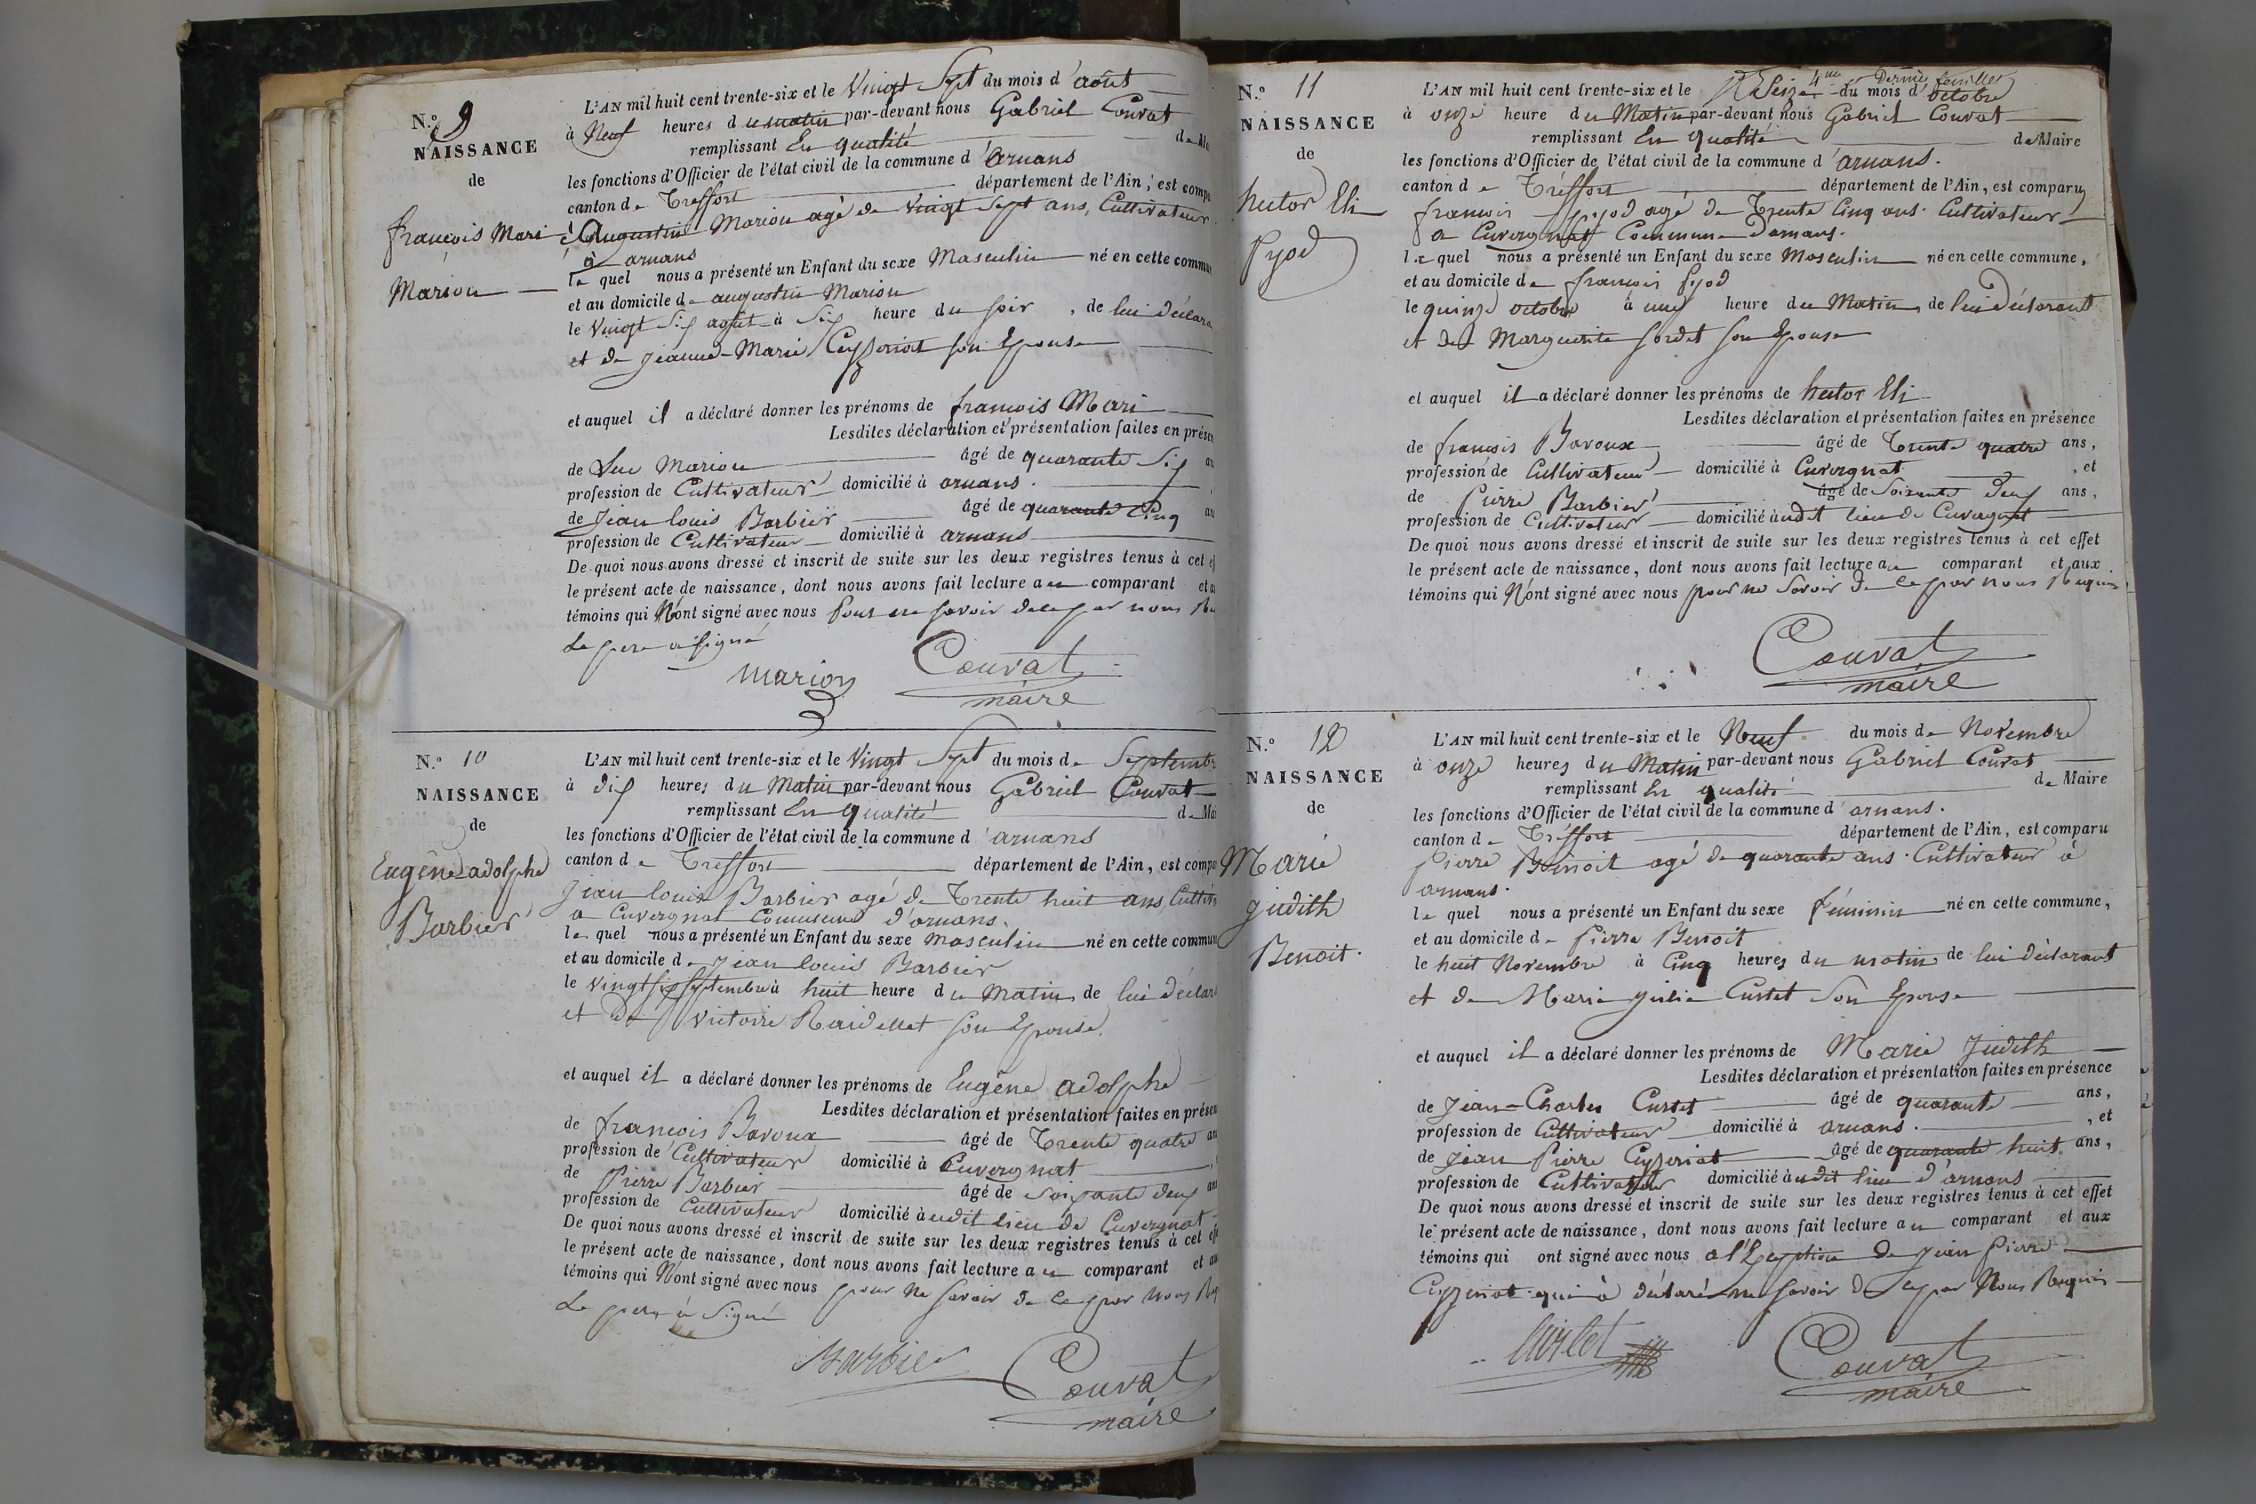 N.º 9
NAISSANCE
de
françois Mari
Marion
L'AN mil huit cent trente-six et le Vingt Sept du mois d'août
à Neuf heures du matin par-devant nous Gabriel Couvat
remplissant En qualité de
les fonctions d'Officier de l'état civil de la commune d'arnans
canton de Treffort département de l'Ain, est
Augustin Marion agé de vingt Sept ans, Cultivateur
à arnans
le quel nous a présenté un Enfant du sexe Masculin né en cette
et au domicile de augustin Marion
le Vingt Six août à Six heure du soir, de lui
et de jeanne-Marie Ceyzeriat son Epouse
et auquel il a déclaré donner les prénoms de françois Mari
Lesdites déclaration et présentation faites en
de Luc Marion âgé de quarante Six
profession de Cultivateur domicilié à arnans.
de Jean louis Barbier âgé de quarante Cinq
profession de Cultivateur domicilié à arnans
De quoi nous avons dressé et inscrit de suite sur les deux registres tenus à cet
le présent acte de naissance, dont nous avons fait lecture au comparant et
témoins qui N'ont signé avec nous Pour ne savoir de ce par nous
Le pere a signé
Marion Couvat
maire
N.º 10
NAISSANCE
de
Eugêne adolphe
Barbier
L'AN mil huit cent trente-six et le Vingt Sept du mois de
à dix heures du Matin par-devant nous Gabriel Couvat
remplissant En qualité de
les fonctions d'Officier de l'état civil de la commune d'arnans
canton de Treffort département de l'Ain, est
Jean louis Barbier agé de Trente huit ans,
a Cuvergnat Commune d'arnans.
le quel nous a présenté un Enfant du sexe masculin né en cette
et au domicile de jean louis Barbier
le vingt six septembre à huit heure du Matin de lui
et de Victoire son Epouse.
et auquel il a déclaré donner les prénoms de Eugêne adolphe
Lesdites déclaration et présentation faites en
de francois Bavoux âgé de Trente quatre
profession de Cultivateur domicilié à Cuvergnat
de Pierre Barbier âgé de soixante deux
profession de Cultivateur domicilié audit lieu de Cuvergnat
De quoi nous avons dressé et inscrit de suite sur les deux registres tenus à cet
le présent acte de naissance, dont nous avons fait lecture au comparant et
témoins qui N'ont signé avec nous pour ne savoir de ce par nous
Le pere a signé
Barbier Couvat
maire
N.º 11
NAISSANCE
de
hector Eli
Pyod
4me et Dernier feuillet
L'AN mil huit cent trente-six et le Seize du mois d'octobre
à onze heure du Matin par-devant nous Gabriel Couvat
remplissant En qualité de Maire
les fonctions d'Officier de l'état civil de la commune d'arnans.
canton de Tréffort département de l'Ain, est comparu
francois pyod agé de Trente Cinq ans. Cultivateur
a Cuvergnat Commune Darnans.
le quel nous a présenté un Enfant du sexe Masculin né en cette commune,
et au domicile de francois pyod
le quinze octobre à une heure du Matin, de lui déclarant
et de Marguerite sordet son Epouse
et auquel il a déclaré donner les prénoms de hector Eli
Lesdites déclaration et présentation faites en présence
de françois Bavoux âgé de Trente quatre ans,
profession de Cultivateur domicilié à Cuvergnat, et
de Pierre Barbier âgé de Soixante deux ans,
profession de Cultivateur domicilié audit lieu de Cuvergnat
De quoi nous avons dressé et inscrit de suite sur les deux registres tenus à cet effet
le présent acte de naissance, dont nous avons fait lecture au comparant et aux
témoins qui N'ont signé avec nous pour ne Savoir De ce par nous Requis
Couvat
maire
N.º 12
NAISSANCE
de
Marie
judith
Benoit.
L'AN mil huit cent trente-six et le Neuf du mois de Novembre
à onze heures du Matin par-devant nous Gabriel Couvat
remplissant En qualité de Maire
les fonctions d'Officier de l'état civil de la commune d'arnans.
canton de Tréffort département de l'Ain, est comparu
Pierre Benoit agé de quarante ans. Cultivateur à
arnans.
le quel nous a présenté un Enfant du sexe féminin né en cette commune,
et au domicile de Pierre Benoit
le huit Novembre à Cinq heures du matin de lui déclarant
et de Marie julie Curtet Son Epouse
et auquel il a déclaré donner les prénoms de Marie Judith
Lesdites déclaration et présentation faites en présence
de Jean-Charles Curtet âgé de quarante ans,
profession de Cultivateur domicilié à arnans., et
de jean Pierre Ceyzeriat âgé de quarante huit ans,
profession de Cultivateur domicilié audit lieu d'arnans
De quoi nous avons dressé et inscrit de suite sur les deux registres tenus à cet effet
le présent acte de naissance, dont nous avons fait lecture au comparant et aux
témoins qui ont signé avec nous a l'Exeption de jean pierre
Ceyzeriat qui à déclaré ne savoir de ce par Nous Requis
Curtet Couvat
maire